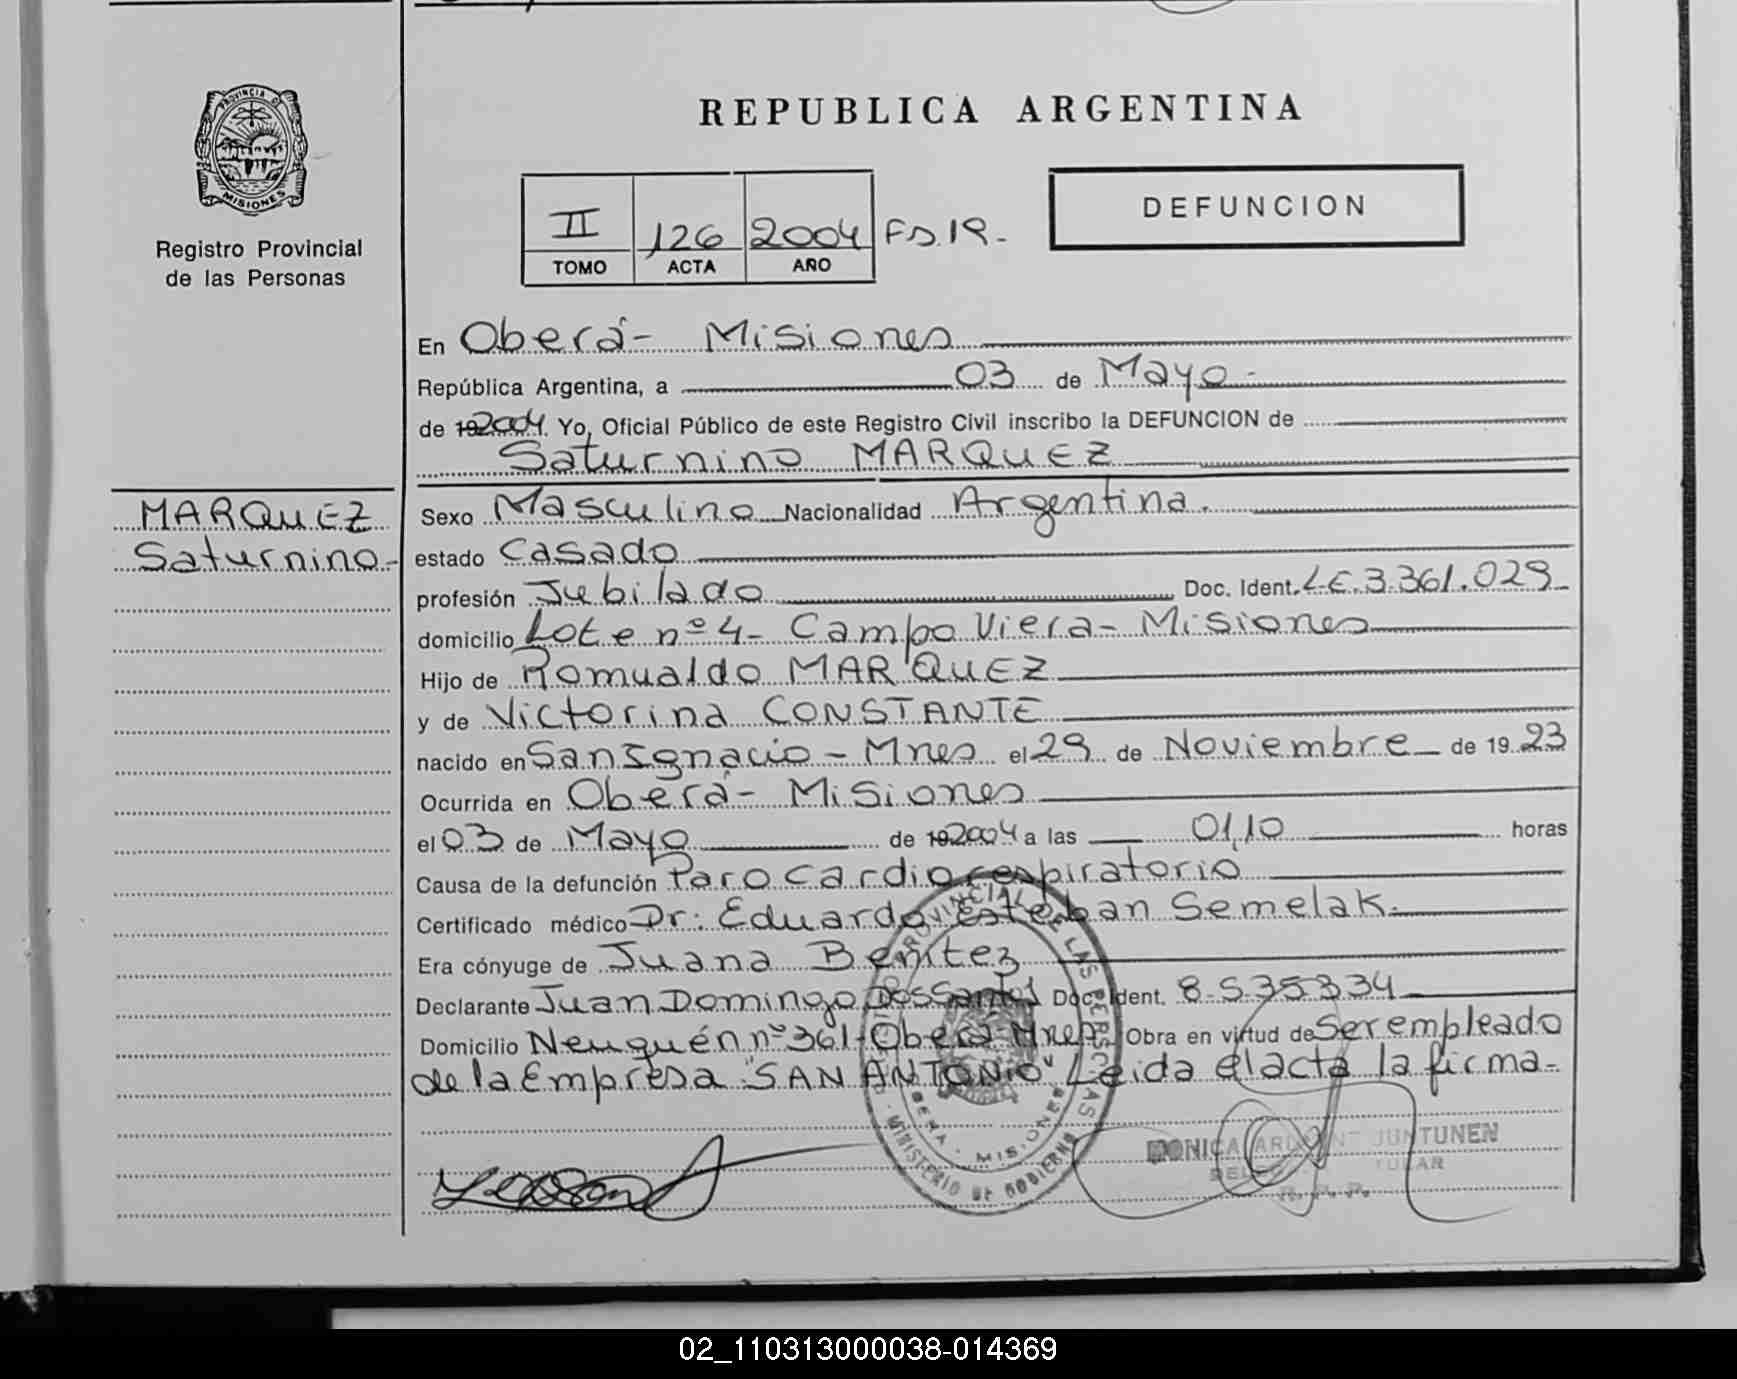 REPUBLICA ARGENTINA
PROVINCIA DE
MISIONES
Registro Provincial
de las Personas
II 126 2004 Fo. 19.-
TOMO ACTA AÑO
DEFUNCION
En Oberá- Misiones
República Argentina, a 03 de Mayo-
de 192004. Yo, Oficial Público de este Registro Civil inscribo la DEFUNCION de
Saturnino MARQUEZ
MARQUEZ
Saturnino-
Sexo Masculino Nacionalidad Argentina.
estado Casado
profesión Jubilado Doc. Ident. LE.3.361.029-
domicilio Lote nº 4- Campo Viera- Misiones
Hijo de Romualdo MARQUEZ
y de Victorina CONSTANTE
nacido en San Ignacio - Mnes el 29 de Noviembre de 19 23
Ocurrida en Oberá- Misiones
el 03 de Mayo de 192004 a las 01,10 horas
Causa de la defunción Paro Cardiorespiratorio
Certificado médico Dr: Eduardo Esteban Semelak.
Era cónyuge de Juana Benitez
Declarante Juan Domingo Dos Santos Doc. Ident. 8.535334
Domicilio Neuquén nº 361-Oberá-Mnes. Obra en virtud de Ser empleado
de la Empresa "SAN ANTONIO" Leida el acta la firma-
MINISTERIO DE GOBIERNO
MISIONES
MONICA JUNTUNEN
TULAR
R. P. P.
02_110313000038-014369